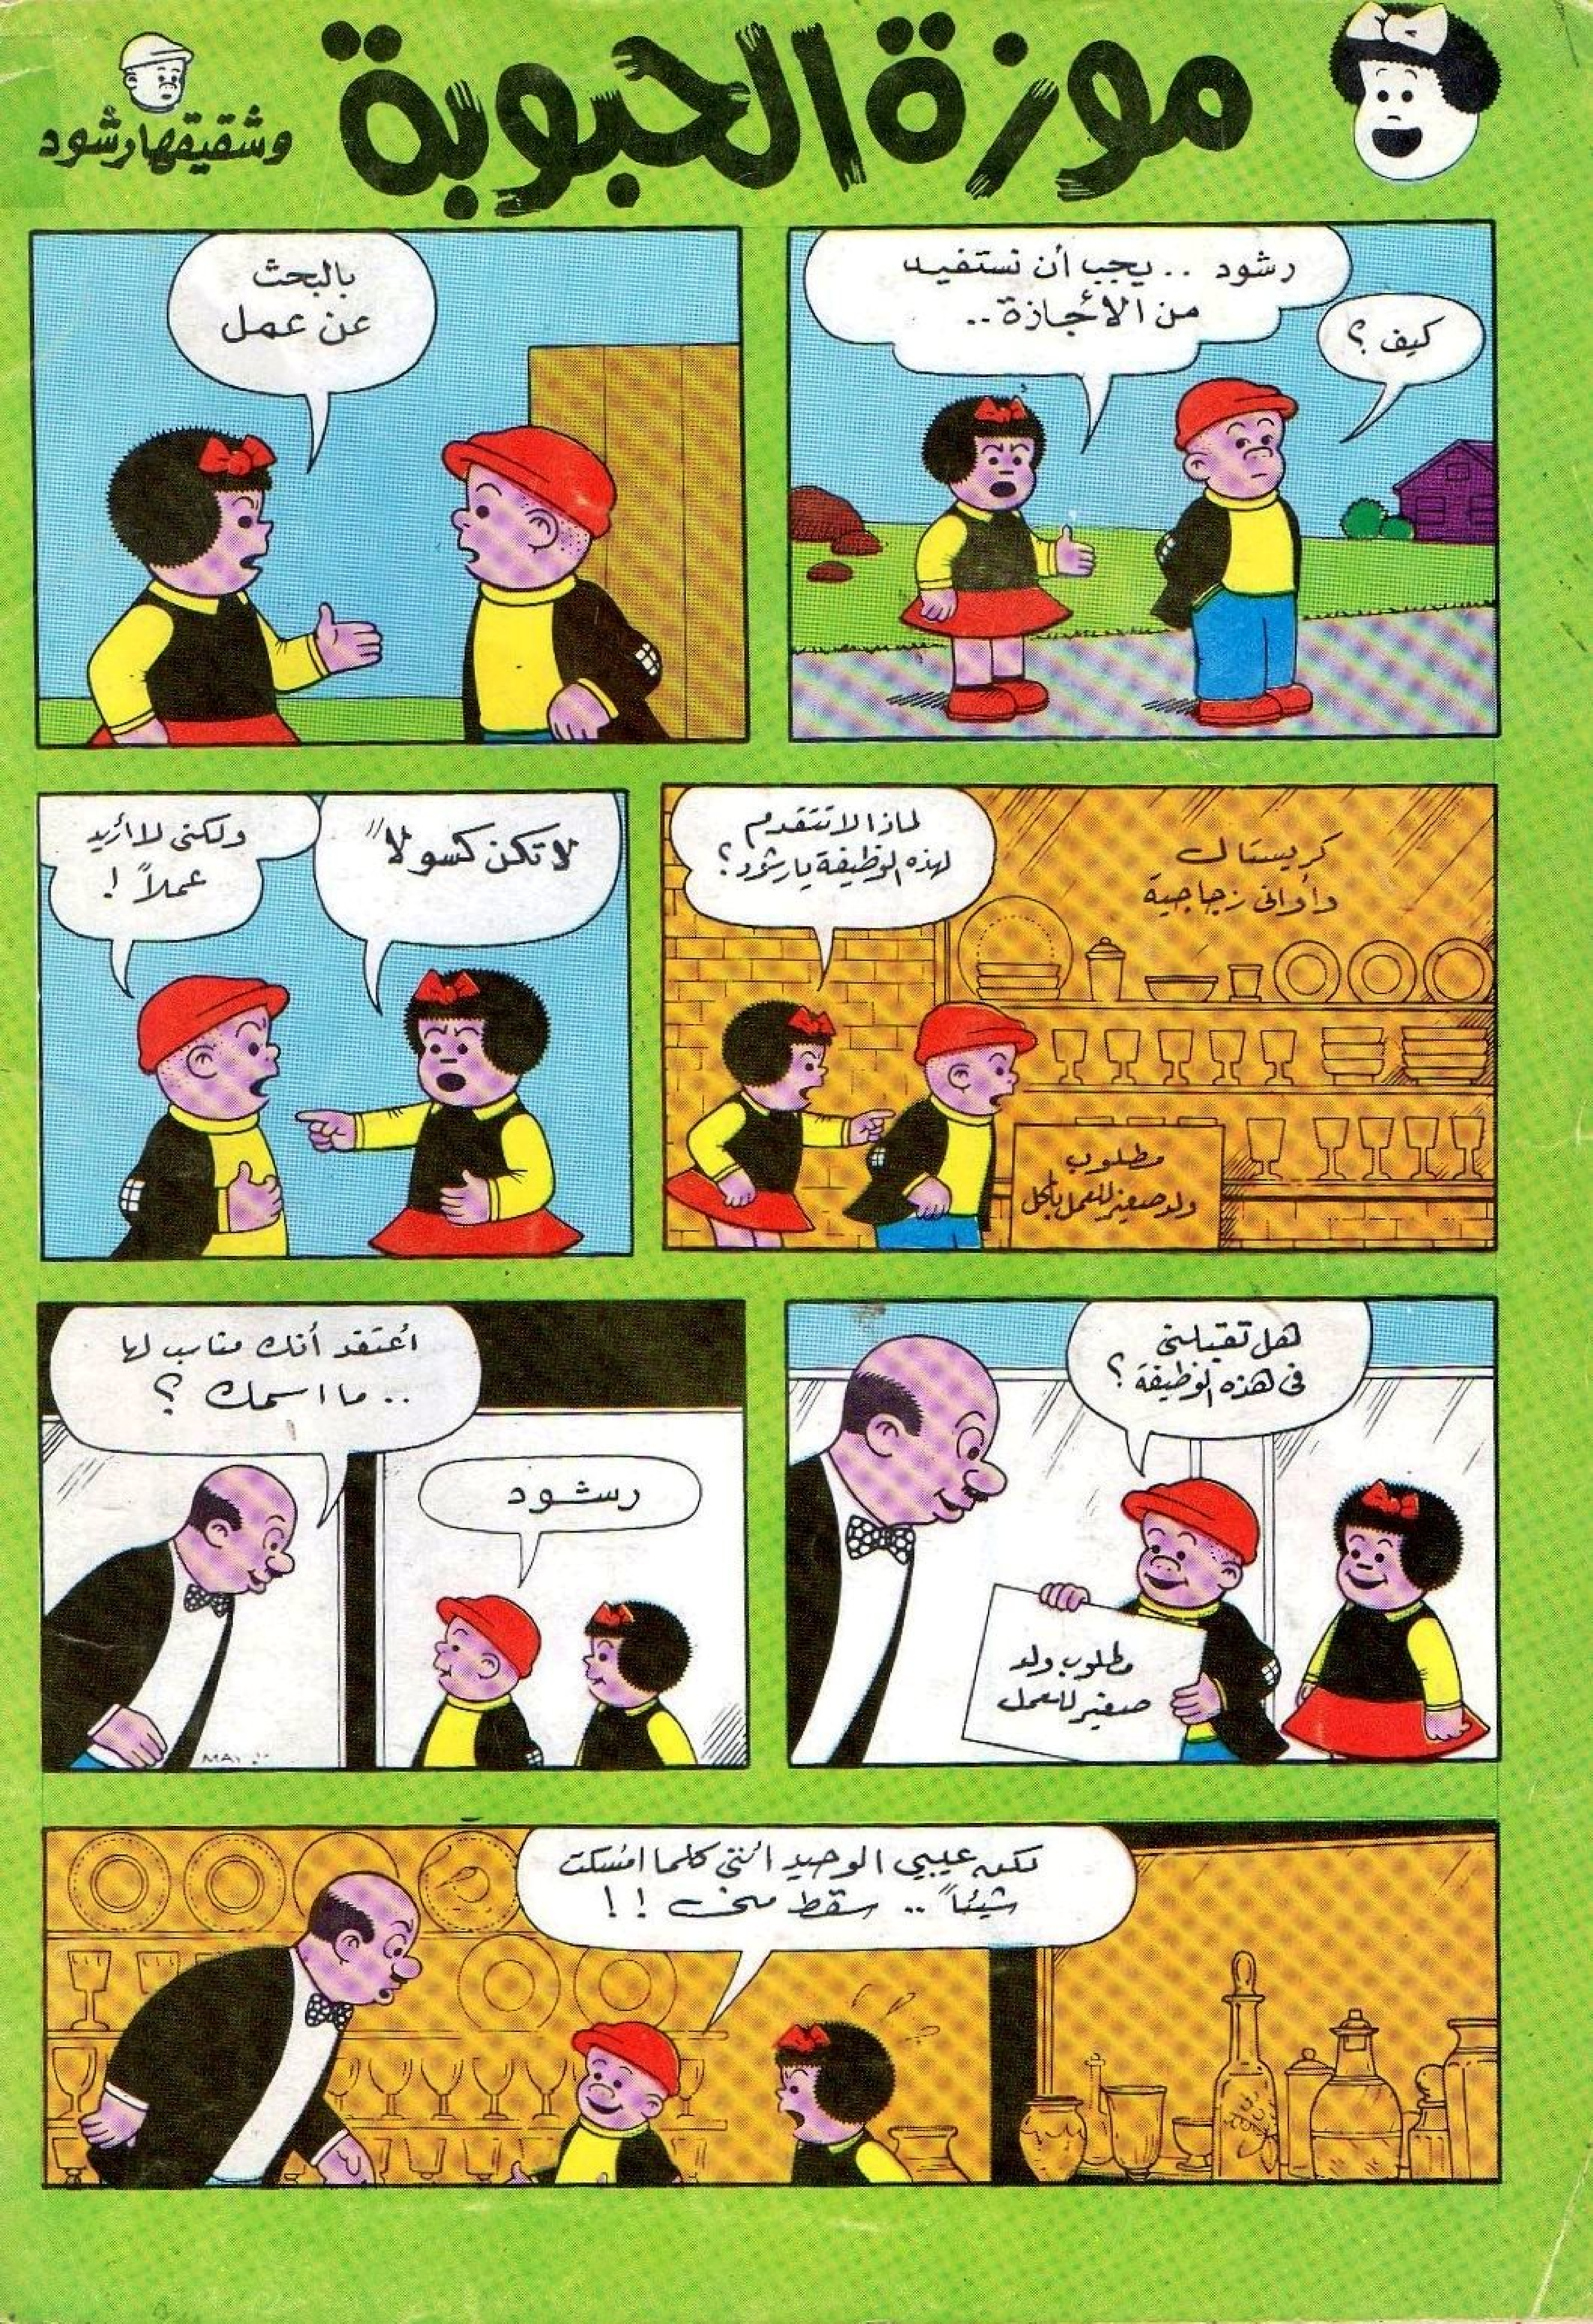 موزة الحبوبة
وشقيقها رشود
رشود .. يجب أن نستفيد
من الأجازة ..
كيف ؟
بالبحث
عن عمل
كريستال
وأوانى زجاجية
لماذا لا تتقدم
لهذه الوظيفة يا رشود ؟
مطلوب
ولد صغير للعمل بالمحل
لا تكن كسولاً
ولكنى لا أريد
عملاً !
هل تقبلنى
فى هذه الوظيفة ؟
مطلوب ولد
صغير للعمل
أعتقد أنك مناسب لها
.. ما اسمك ؟
رشود
لكن عيبي الوحيد أننى كلما أمسكت
شيئاً .. سقط منى ! !